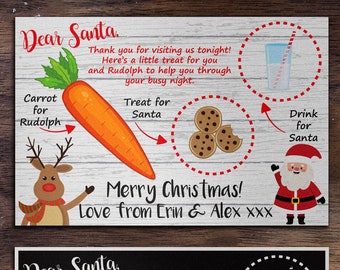 Dear Santa,
Thank you for visiting us tonight!
Here's a little treat for you
and Rudolph to help you through
your busy night.
Carrot
for
Rudolph
Treat for
Santa
Drink
for
Santa
Merry Christmas!
Love from Erin & Alex xxx
Dear Santa,